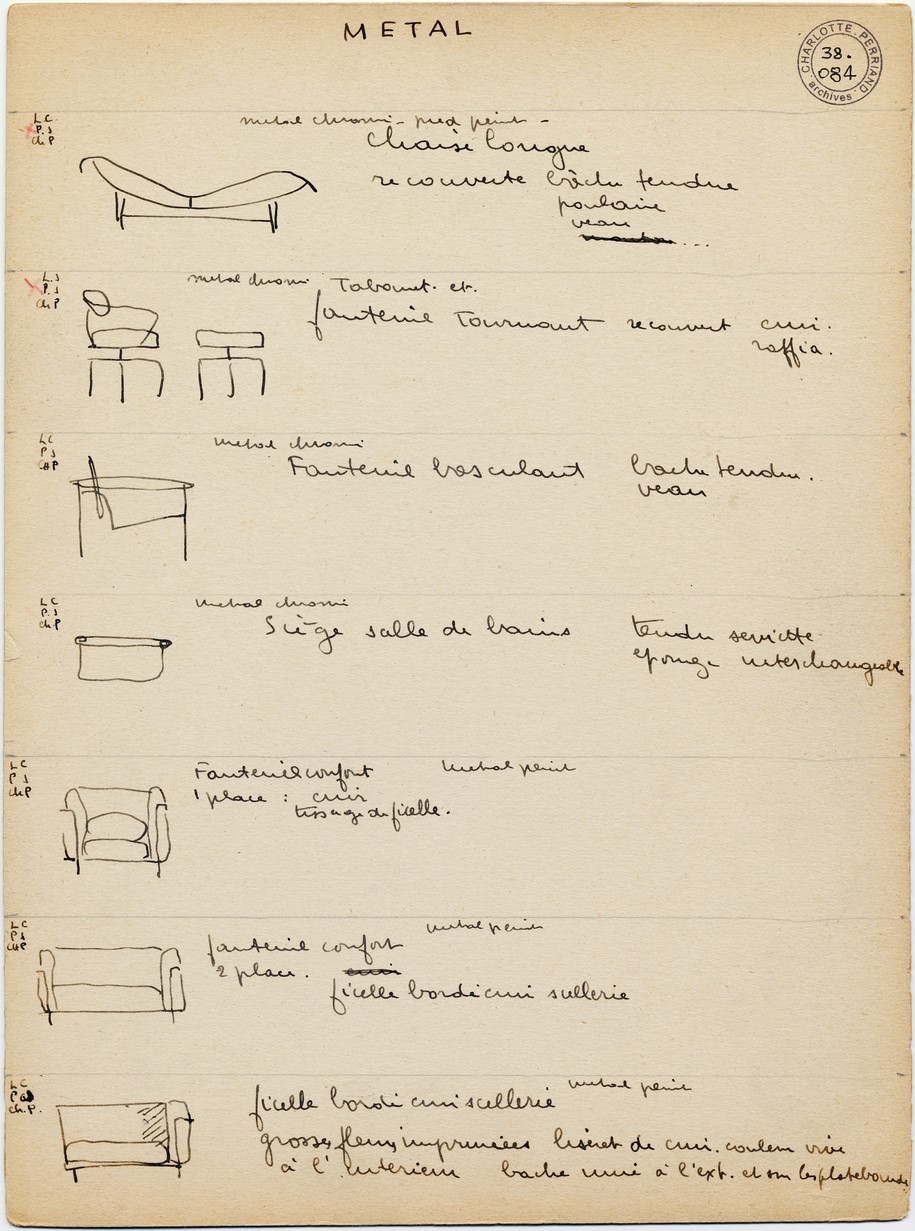 METAL
CHARLOTTE PERRIAND archives
38.
084
L C
P. J
ch P
metal chromé - pied peint -
Chaise longue
recouverte bâche tendue
poulain
veau
mouton ...
L. J
P. J
ch P
metal chromé Tabouret. et.
fauteuil Tournant recouvert cuir.
raffia.
L C
P J
CHP
metal chromé
Fauteuil basculant bache tendu.
veau
L C
P. J
ch P
metal chromé
Siège salle de bains tendu serviette
eponge interchangeable
L C
P J
ch P
Fauteuil confort metal peint
1 place : cuir
tissage de ficelle.
L C
P J
CHP
metal peint
fauteuil confort
2 place. cuir
ficelle bordé cuir sellerie
L C
ch. P.
metal peint
ficelle bordé cuir scellerie
grosses fleurs imprimées liseret de cuir. couleur vive
à l'interieur bache unie à l'ext. et sur les platebandes